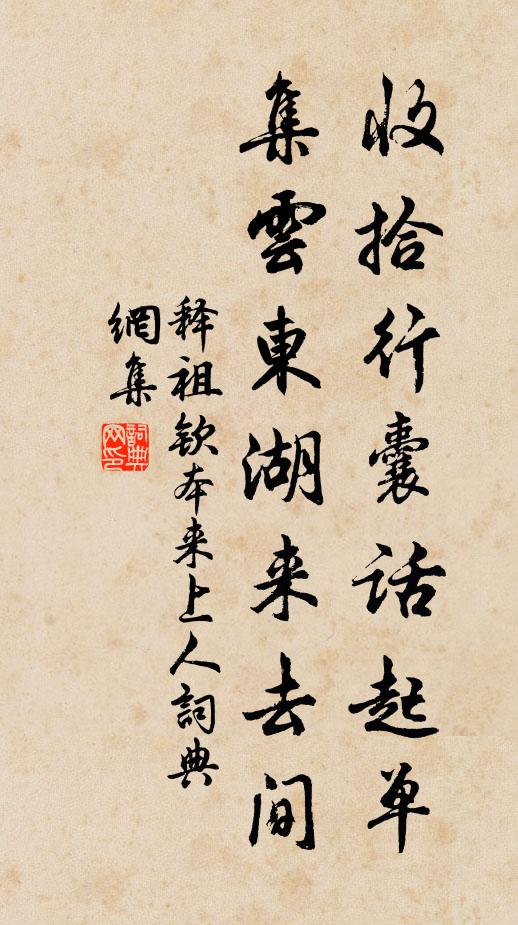 收拾行囊話起单
集雲東湖来去间
释祖钦本来上人詞典
網集
詞典网印